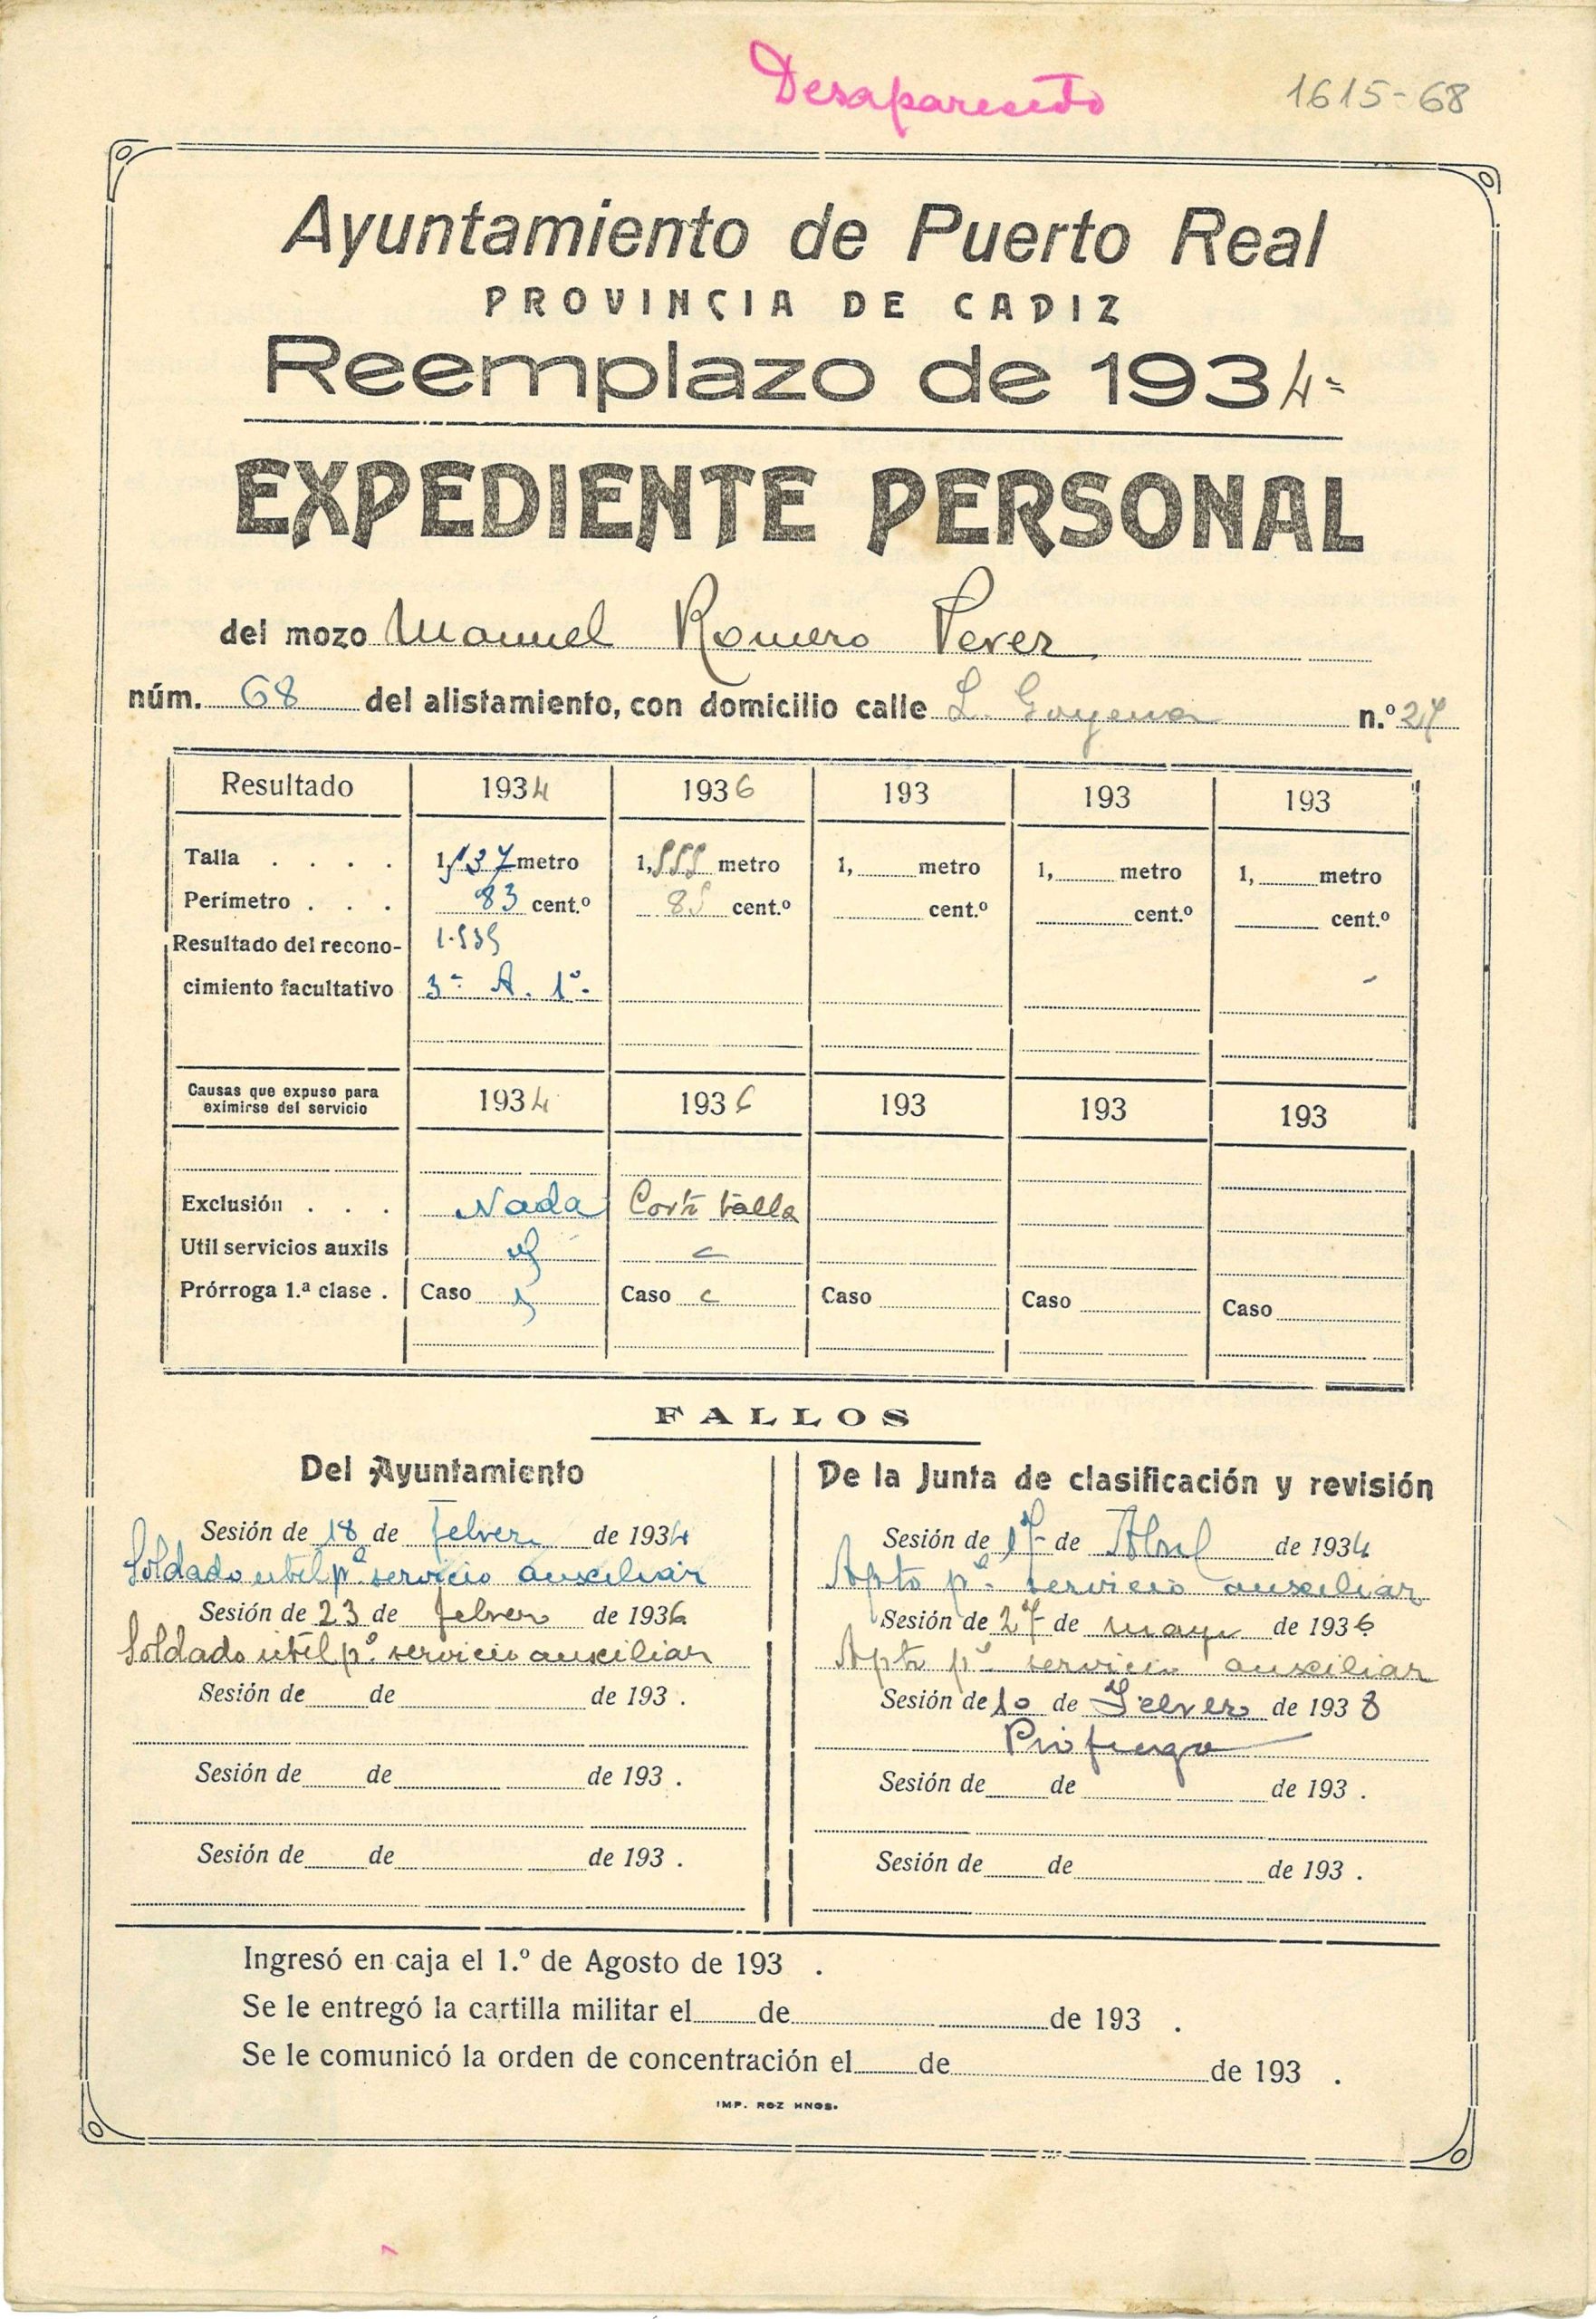 Desaparecido
1615-68
Ayuntamiento de Puerto Real
PROVINCIA DE CADIZ
Reemplazo de 1934=
EXPEDIENTE PERSONAL
del mozo Manuel Romero Perez
núm. 68 del alistamiento, con domicilio calle L. Goyena n.º 27
Resultado 1934 1936 193 193 193
Talla . . . . 1,537 metro 1,555 metro 1, metro 1, metro 1, metro
Perímetro . . . 83 cent.º 85 cent.º cent.º cent.º cent.º
Resultado del recono- 1.535
cimiento facultativo 3ª A. 1º.
Causas que expuso para
eximirse del servicio 1934 1936 193 193 193
Exclusión . . . Nada Corta talla
Util servicios auxils
Prórroga 1.ª clase . Caso Caso Caso Caso Caso
FALLOS
Del Ayuntamiento
Sesión de 18 de Febrero de 1934
Soldado util pª servicio auxiliar
Sesión de 23 de febrero de 1936
Soldado util pª servicio auxiliar
Sesión de de de 193 .
Sesión de de de 193 .
Sesión de de de 193 .
De la Junta de clasificación y revisión
Sesión de 17 de Abril de 1934
Apto pª servicio auxiliar
Sesión de 27 de mayo de 1936
Apto pª servicio auxiliar
Sesión de 10 de Febrero de 1938
Prófugo
Sesión de de de 193 .
Sesión de de de 193 .
Ingresó en caja el 1.º de Agosto de 193 .
Se le entregó la cartilla militar el de de 193 .
Se le comunicó la orden de concentración el de de 193 .
IMP. ROZ HNOS.